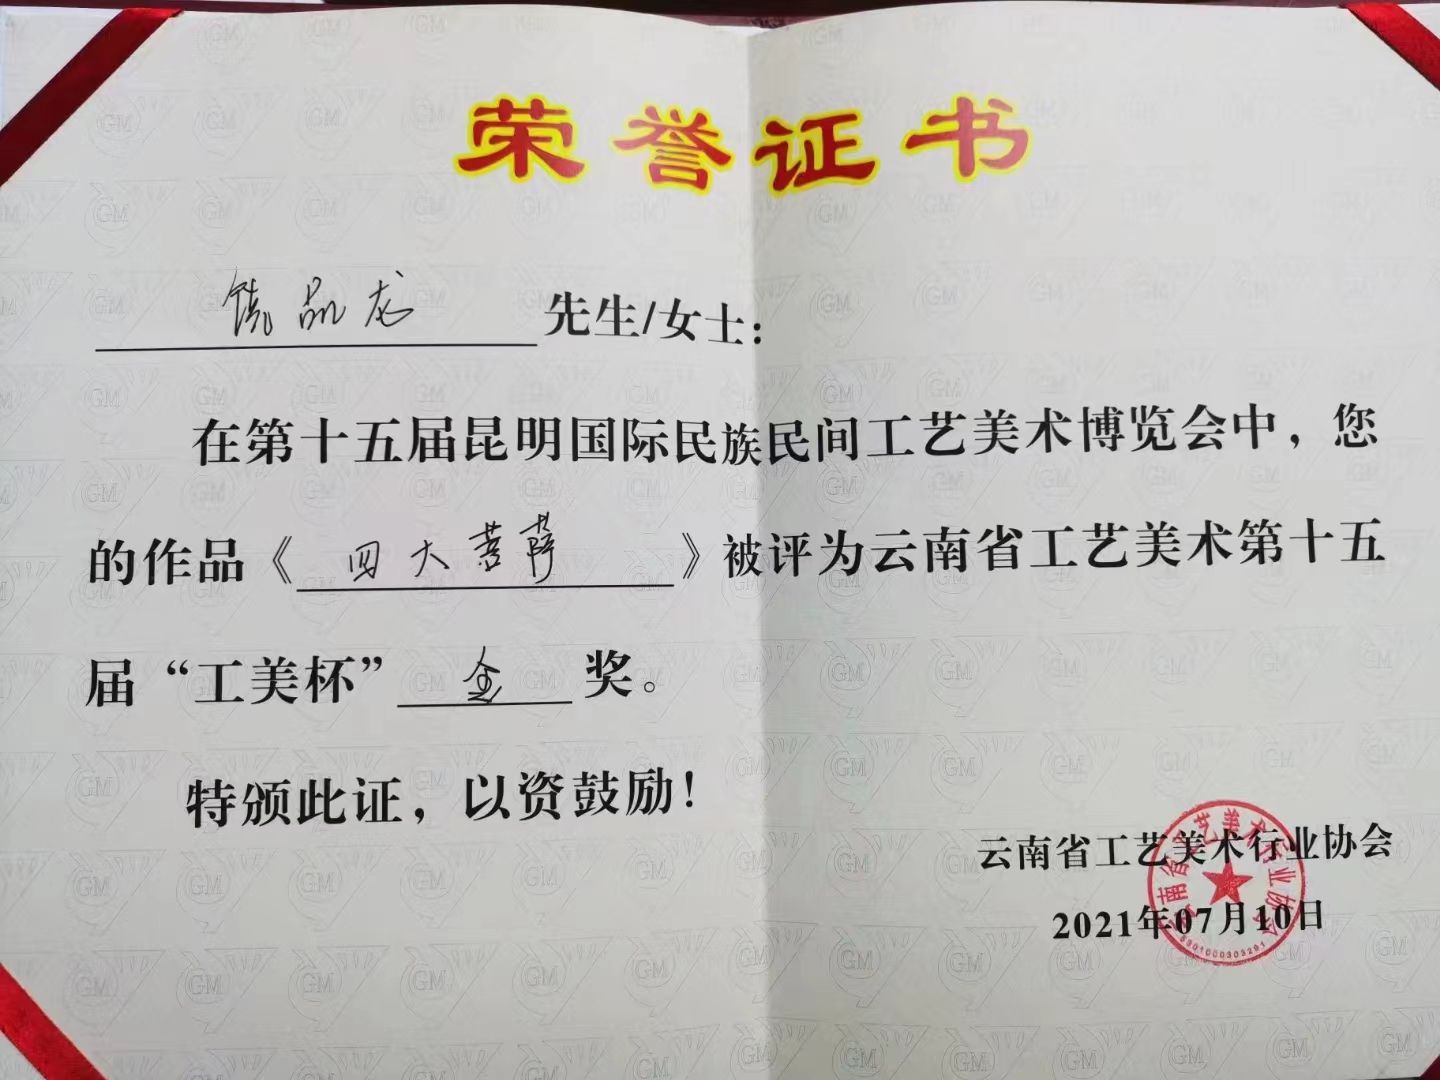 荣誉证书
饶品龙 先生/女士：
在第十五届昆明国际民族民间工艺美术博览会中，您
的作品《 四大菩萨 》被评为云南省工艺美术第十五
届“工美杯” 金 奖。
特颁此证，以资鼓励！
云南省工艺美术行业协会
2021年07月10日
云南省工艺美术行业协会
5301000303291
GM